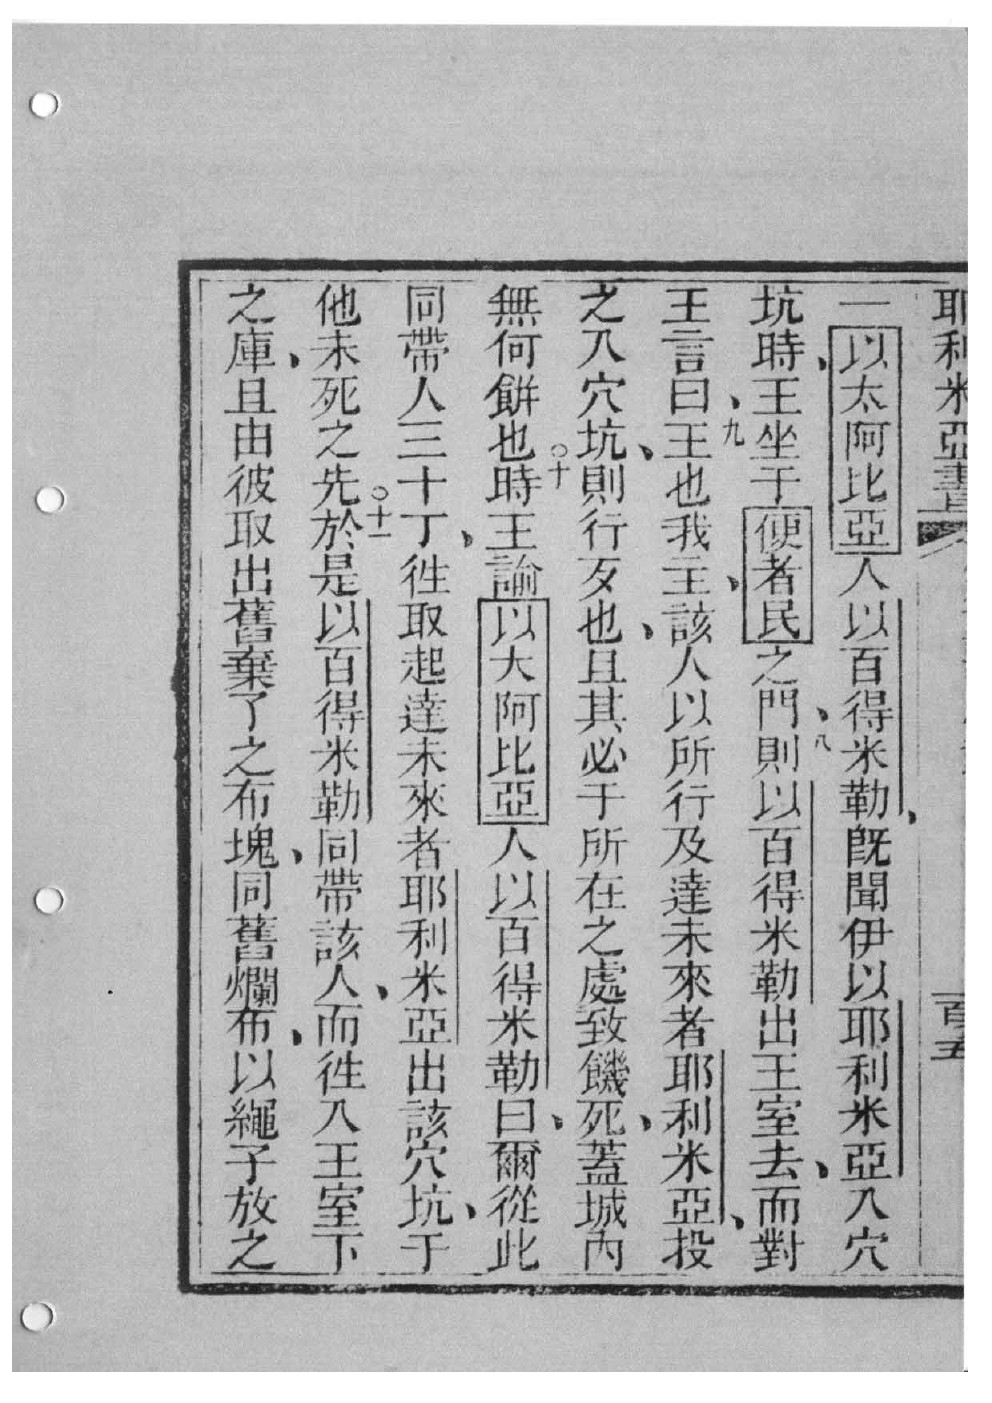 耶利米亞書
百五
一以太阿比亞人以百得米勒、旣聞伊以耶利米亞入穴
坑時、王坐于便者民之門、八則以百得米勒出王室去、而對
王言曰、九王也我主、該人以所行及達未來者耶利米亞、投
之入穴坑、則行歹也、且其必于所在之處致饑死、蓋城內
無何餅也○十時王諭以大阿比亞人以百得米勒曰、爾從此
同帶人三十丁、徃取起達未來者耶利米亞出該穴坑、于
他未死之先○十一於是以百得米勒同帶該人、而徃入王室下
之庫、且由彼取出舊棄了之布塊、同舊爛布、以繩子放之